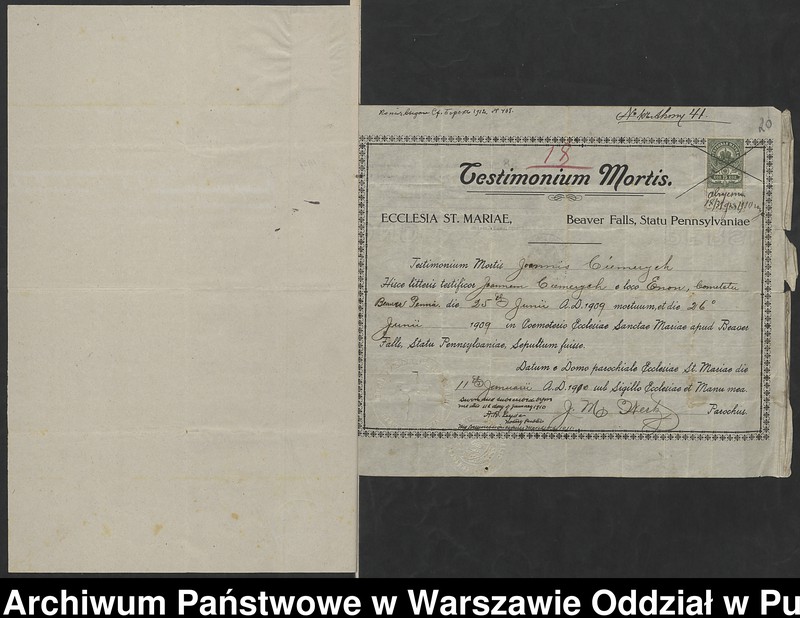 20
18
Testimonium Mortis.
ECCLESIA ST. MARIAE, Beaver Falls, Statu Pennsylvaniae
Testimonium Mortis Joannis Ciemerych
Hisce litteris testificor Joannem Ciemerych e loco Enon, Comitatu
Beaver Penna. die 25 th Junii A.D. 1909 mortuum, et die 26 o
Junii 1909 in Coemeterio Ecclesiae Sanctae Mariae apud Beaver
Falls, Statu Pennsylvaniae, Sepultum fuisse.
Datum e Domo parochiale Ecclesiae St. Mariae die
11 th Januarii A.D. 1910 sub Sigillo Ecclesiae et Manu mea.
Sworn and subscribed before
me this 11th day of January 1910
Notary Public
J. M. Parochus.
Archiwum Państwowe w Warszawie Oddział w Pu